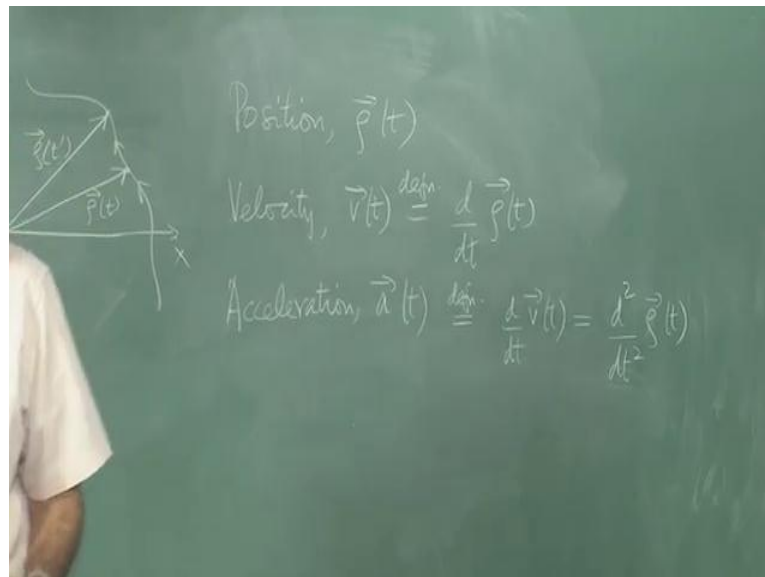 ρ⃗(t')
ρ⃗(t)
X
Position, ρ⃗(t)
Velocity, v⃗(t) defn. = d/dt ρ⃗(t)
Acceleration, a⃗(t) defn. = d/dt v⃗(t) = d²/dt² ρ⃗(t)